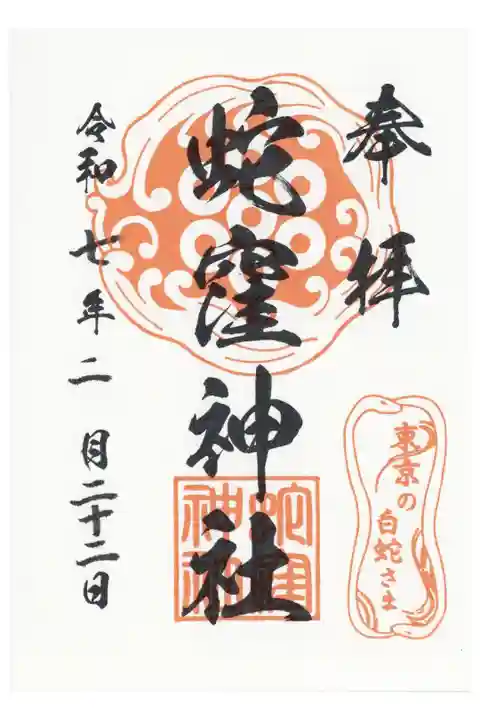 奉拝
蛇窪神社
令和七年二月二十二日
東京の
白蛇さま
蛇窪
神社